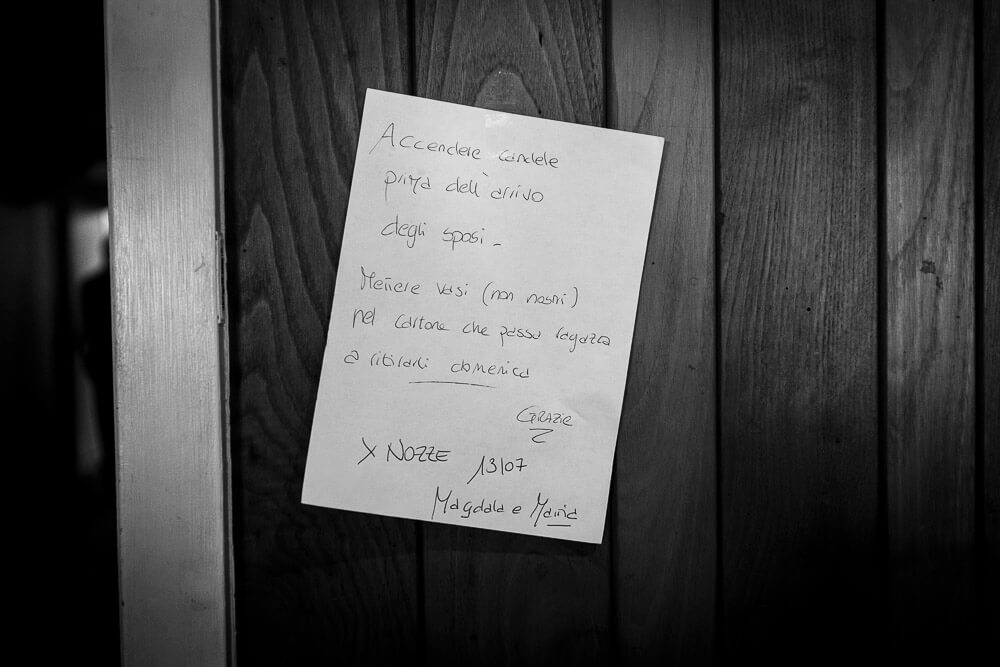 Accendere candele
prima dell'arrivo
degli sposi -
Mettere vasi (non nostri)
nel cartone che passa ragazza
a ritirarli domenica
GRAZIE
X NOZZE 13/07
Magdala e